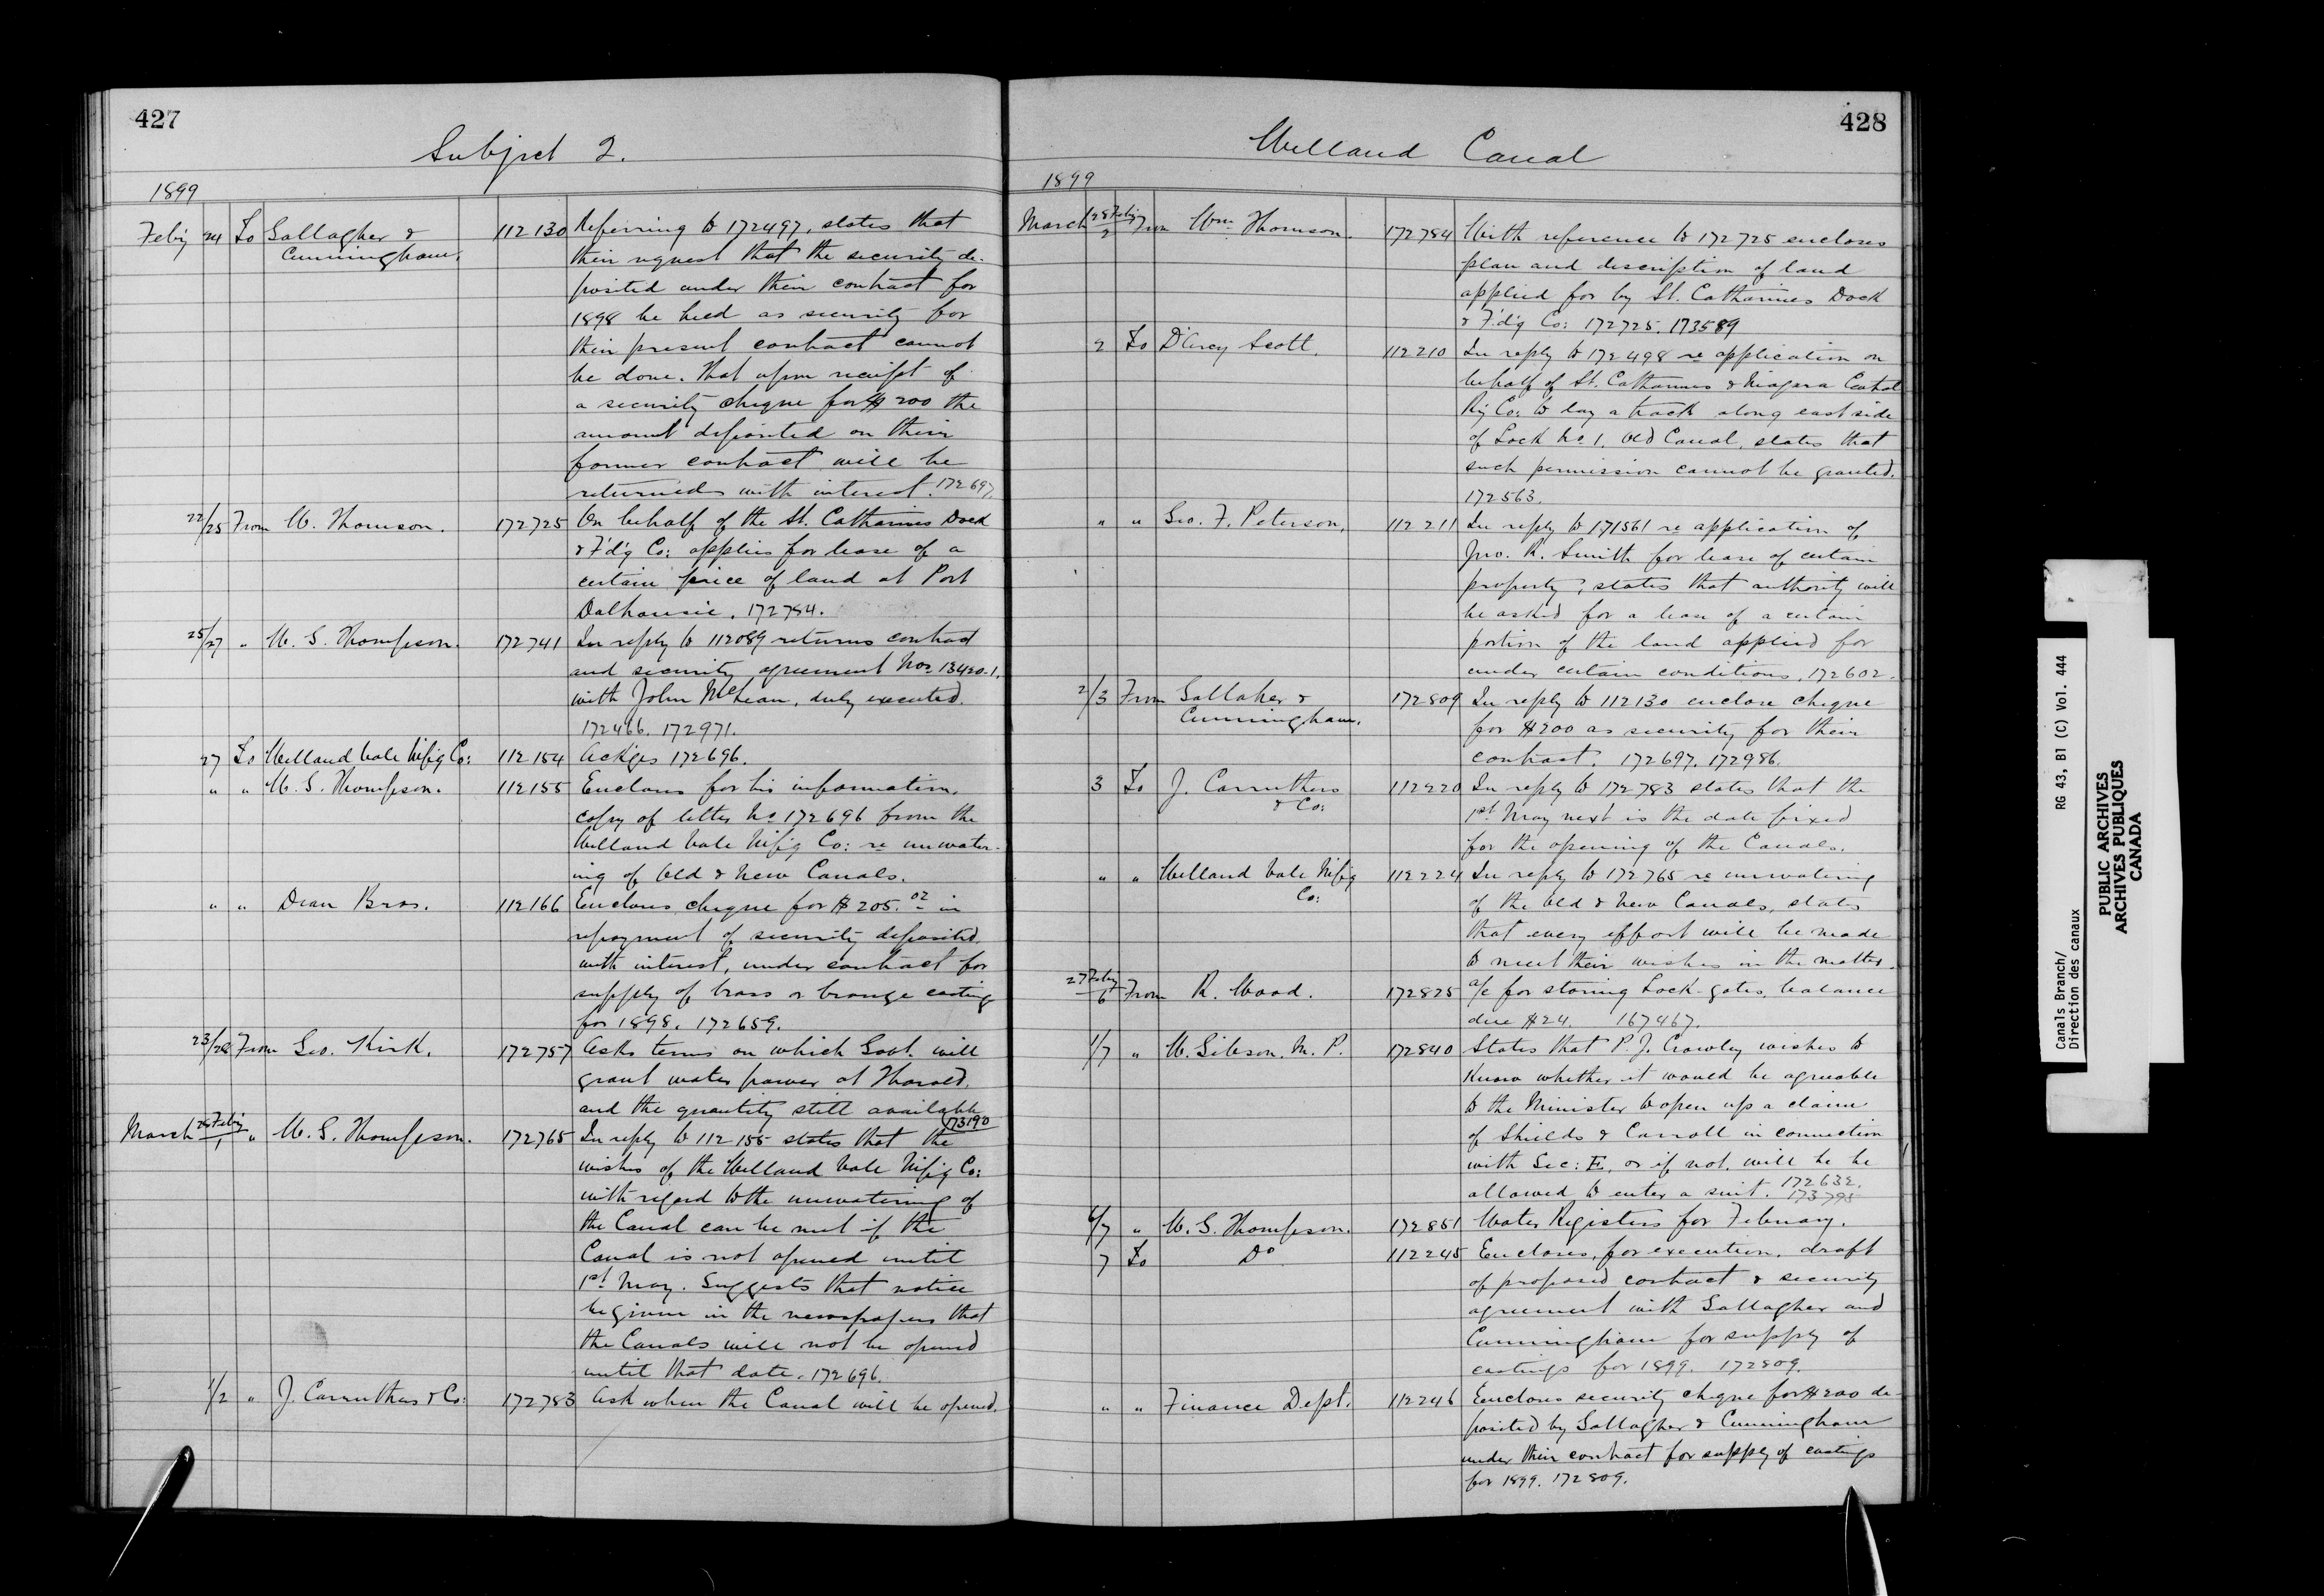 427
Subject 2.
1899
Feby 24 To Gallagher & 112130 Referring to 172497, states that
Cunningham. their request that the security de-
posited under their contract for
1898 be held as security for
their present contract cannot
be done. That upon receipt of
a security cheque for $200 the
amount deposited on their
former contract will be
returned with interest. 172697.
22/25 From W. Thomson. 172725 On behalf of the St. Catharines Dock
& F'd'g Co: applies for lease of a
certain piece of land at Port
Dalhousie. 172784.
25/27 " W. G. Thompson. 172741 In reply to 112089 returns contract
and security agreement Nos 13420-1.
with John McLean, duly executed.
172466. 172971.
27 To Welland Vale M'f'g Co: 112154 Ackges 172696.
" " W. G. Thompson. 112155 Encloses for his information,
copy of letter No 172696 from the
Welland Vale M'f'g Co: re unwater-
ing of Old & New Canals.
" " Dean Bros. 112166 Encloses cheque for $205.02 in
repayment of security deposited
with interest, under contract for
supply of brass or bronze castings
for 1898. 172659.
23/28 From Geo. Kirk. 172757 Asks terms on which Govt. will
grant water power at Thorold,
and the quantity still available
173190
March 28 Feby/1 " W. G. Thompson. 172765 In reply to 112155 states that the
wishes of the Welland Vale M'f'g Co:
with regard to the unwatering of
the Canal can be met if the
Canal is not opened until
1st May. Suggests that notice
be given in the newspapers that
the Canals will not be opened
until that date. 172696.
1/2 " J. Carruthers & Co: 172783 Ask when the Canal will be opened.
428
Welland Canal
1899
March 28 Feby/2 From Wm Thomson. 172784 With reference to 172725 encloses
plan and description of land
applied for by St. Catharines Dock
& F'd'g Co: 172725. 173589
2 To D'Arcy Scott. 112210 In reply to 172498 re application on
behalf of St. Catharines & Niagara Central
Ry Co: to lay a track along east side
of Lock No 1. Old Canal, states that
such permission cannot be granted.
172563.
" " Geo. F. Peterson, 112211 In reply to 171561 re application of
Jno. R. Smith for lease of certain
property, states that authority will
be asked for a lease of a certain
portion of the land applied for
under certain conditions. 172602.
2/3 From Gallaher & 172809 In reply to 112130 enclose cheque
Cunningham. for $200 as security for their
contract. 172697. 172986.
3 To J. Carruthers 112220 In reply to 172783 states that the
& Co: 1st May next is the date fixed
for the opening of the Canals.
" " Welland Vale M'f'g 112224 In reply to 172765 re unwatering
Co: of the Old & New Canals, states
that every effort will be made
to meet their wishes in the matter.
27 Feby/6 From R. Wood. 172825 a/c for storing Lock-gates, balance
due $24. 167467.
1/7 " W. Gibson. M. P. 172840 States that P. J. Crowley wishes to
know whether it would be agreeable
to the Minister to open up a claim
of Shields & Carroll in connection
with Sec: E, or if not, will he be
allowed to enter a suit. 172632.
173795
6/7 " W. G. Thompson. 172851 Water Registers for February.
7 To Do 112245 Encloses, for execution, draft
of proposed contract & security
agreement with Gallagher and
Cunningham for supply of
castings for 1899. 172809.
" " Finance Dept. 112246 Encloses security cheque for $200 de-
posited by Gallagher & Cunningham
under their contract for supply of castings
for 1899. 172809.
Canals Branch/ RG 43, B1 (C) Vol. 444
Direction des canaux
PUBLIC ARCHIVES
ARCHIVES PUBLIQUES
CANADA